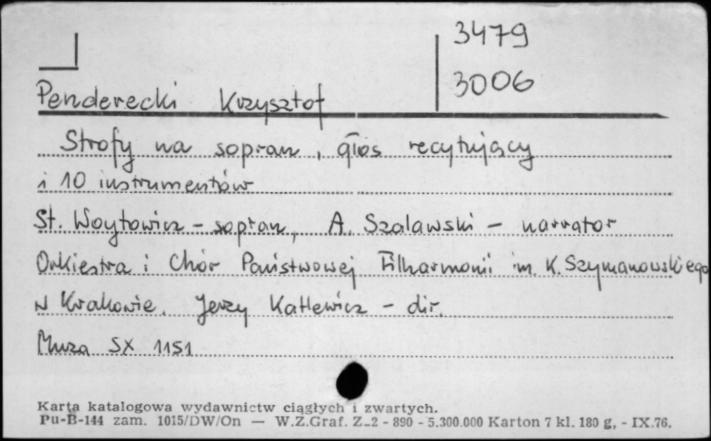 3479
3006
Penderecki Krzysztof
Strofy na sopran, głos recytujący
i 10 instrumentów
St. Woytowicz - sopran, A. Szalawski - narrator
Orkiestra i Chór Państwowej Filharmonii im. K. Szymanowskiego
w Krakowie. Jerzy Katlewicz - dir.
Muza SX 1151
Karta katalogowa wydawnictw ciągłych i zwartych.
Pu-B-144 zam. 1015/DW/On — W.Z.Graf. Z-2 - 890 - 5.300.000 Karton 7 kl. 180 g, - IX.76.